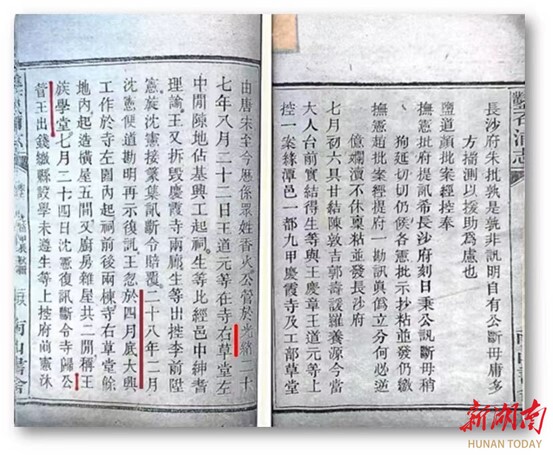 長沙府朱批孰是孰非訊明自有公斷毋庸多
方揣測以援助爲慮也
鹽道顏批案經控奉
撫憲批府提訊希長沙府刻日秉公訊斷毋稍
狥延切切仍候各憲批示抄粘並發仍繳
撫憲趙批案經提府一勘訊眞僞立分何必逆
億嘵瀆不休稟粘並發長沙府
七月初六具甘結陳敦吉郭濤談羅養源今當
大人台前實結得生等與王慶章王道元等上
控一案緣潭邑一都九甲慶霞寺及工部草堂
由唐宋至今歷係眾姓香火公管於光緒二十
七年八月二十二日王道元等在寺右草堂左
中間隙地佔基興工起祠生等比經邑中紳耆
理諭王又拆毀慶霞寺兩廟生等出控李前陞
憲旋沈憲接篆集訊斷令賠覆二十八年二月
沈憲便道勘明再示復訊王忽於四月底大興
工作於寺左園內起祠前後兩棟寺右草堂餘
地內起造橫屋五間又廚房雜屋共二間稱王
族學堂七月二十四日沈憲復訊斷令寺歸公
管王出錢繳縣設學未遵生等上控府前憲沐
南山書舍
新湖南
HUNAN TODAY